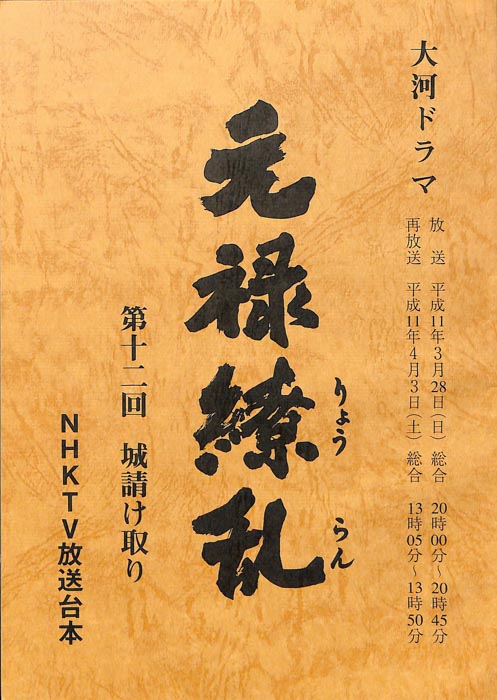 大河ドラマ
放　送　平成11年3月28日（日）総合　20時00分～20時45分
再放送　平成11年4月3日（土）総合　13時05分～13時50分
元禄繚乱
りょう　らん
第十二回　城請け取り
NHKTV放送台本